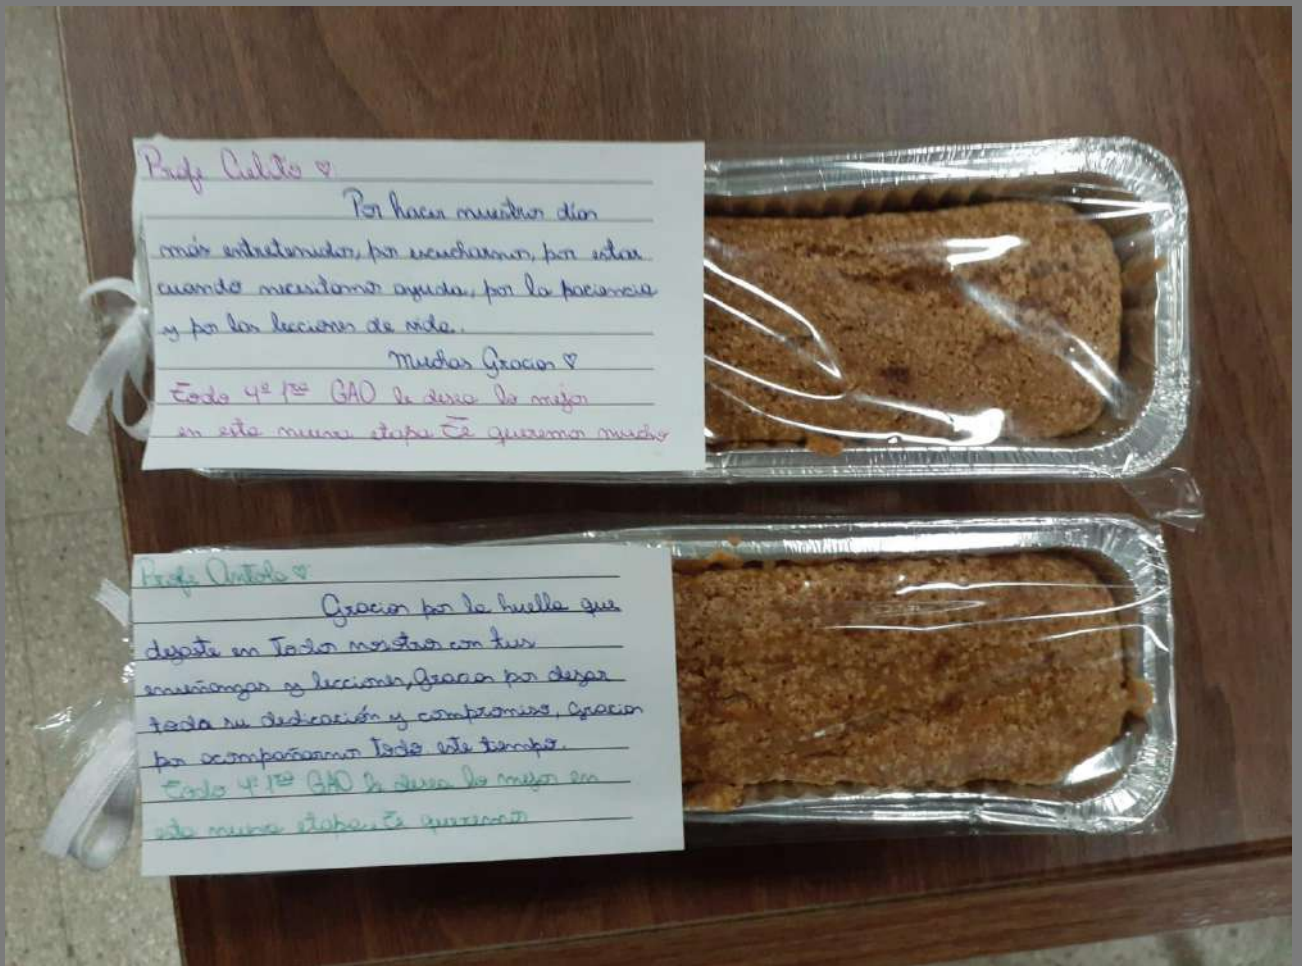 Profe Cielito ♡
Por hacer nuestros días
más entretenidos, por escucharnos, por estar
cuando necesitamos ayuda, por la paciencia
y por las lecciones de vida.
Muchas Gracias ♡
Todo 4º 1ra GAO le desea lo mejor
en esta nueva etapa Te queremos mucho
Profe Antola ♡
Gracias por la huella que
dejaste en todos nosotros con tus
enseñanzas y lecciones, Gracias por dejar
toda su dedicación y compromiso, Gracias
por acompañarnos todo este tiempo.
Todo 4º 1ra GAO le desea lo mejor en
esta nueva etapa. Te queremos